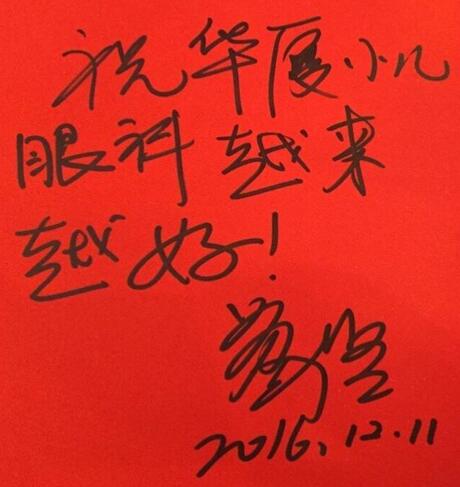 祝华厦小儿
眼科越来
越好！
2016.12.11